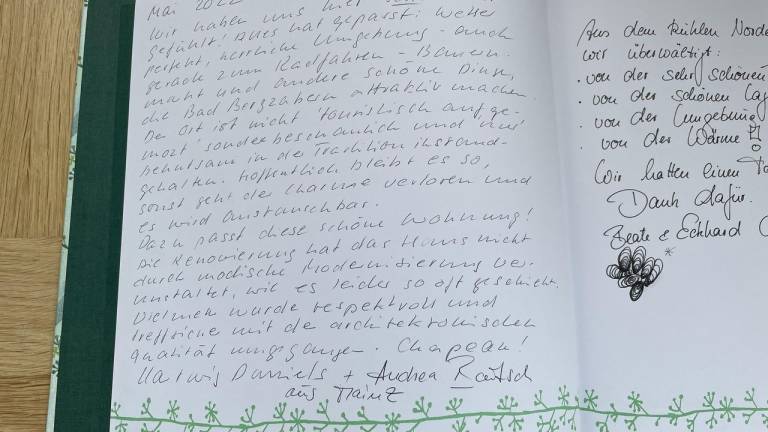 Mai 2022
Wir haben uns hier
gefühlt! Alles hat gepasst: Wetter
perfekt, herrliche Umgebung - auch
gerade zum Radfahren - Bauern-
markt und andere schöne Dinge,
die Bad Bergzabern attraktiv machen.
Der Ort ist nicht touristisch aufge-
motzt sondern beschaulich und nur
behutsam in der Tradition instand-
gehalten. Hoffentlich bleibt es so,
sonst geht der Charme verloren und
es wird austauschbar.
Dazu passt diese schöne Wohnung!
Die Renovierung hat das Haus nicht
durch modische Modernisierung ver-
unstaltet, wie es leider so oft geschieht.
Vielmehr wurde respektvoll und
mit der architektonischen
Qualität umgegangen. Chapeau!
Hartwig Daniels + Andrea Raitsch
aus Mainz
Aus dem kühlen Norde
wir überwältigt:
· von der sehr schönen
· von der schönen Lag
· von der Umgebung
· von der Wärme!
Wir hatten einen
Dank dafür.
Beate & Eckhard